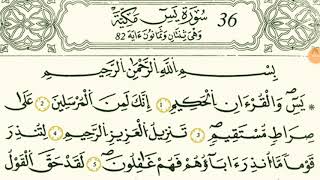 سُورَةُ يَسٓ مَكِّيَّةٌ 36
وَهِيَ ثِنْتَانِ وَثَمَانُونَ ءَايَة 82
بِسْمِ اللَّهِ الرَّحْمَٰنِ الرَّحِيمِ
يَسٓ وَالْقُرْءَانِ الْحَكِيمِ 1 إِنَّكَ لَمِنَ الْمُرْسَلِينَ 2 عَلَىٰ
صِرَاطٍ مُّسْتَقِيمٍ 3 تَنزِيلُ الْعَزِيزِ الرَّحِيمِ 4 لِتُنذِرَ
قَوْمًا مَّا أُنذِرَ ءَابَاؤُهُمْ فَهُمْ غَٰفِلُونَ 5 لَقَدْ حَقَّ الْقَوْلُ